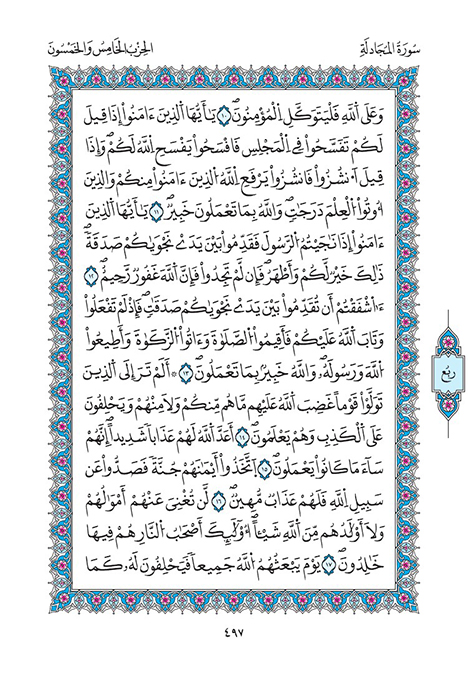 سُورَةُ المُجَادلَةِ
الحِزْبُ الخَامِسُ وَالخَمْسُونَ
وَعَلَى اَ۬للَّهِ فَلْيَتَوَكَّلِ اِ۬لْمُؤْمِنُونَۖ ١٠ يَٰٓأَيُّهَا اَ۬لذِينَ ءَامَنُوٓاْ إِذَا قِيلَ
لَكُمْ تَفَسَّحُواْ فِے اِ۬لْمَجْلِسِ فَافْسَحُواْ يَفْسَحِ اِ۬للَّهُ لَكُمْۖ وَإِذَا
قِيلَ اَ۟نشُزُواْ فَانشُزُواْ يَرْفَعِ اِ۬للَّهُ اُ۬لذِينَ ءَامَنُواْ مِنكُمْ وَالذِينَ
أُوتُواْ اُ۬لْعِلْمَ دَرَجَٰتٖۖ وَاللَّهُ بِمَا تَعْمَلُونَ خَبِيرٞۖ ١١ يَٰٓأَيُّهَا اَ۬لذِينَ
ءَامَنُوٓاْ إِذَا نَٰجَيْتُمُ اُ۬لرَّسُولَ فَقَدِّمُواْ بَيْنَ يَدَےْ نَجْوَيٰكُمْ صَدَقَةٗۖ
ذَٰلِكَ خَيْرٞ لَّكُمْ وَأَطْهَرُۖ فَإِن لَّمْ تَجِدُواْ فَإِنَّ اَ۬للَّهَ غَفُورٞ رَّحِيمٌۖ ١٢
ءَآشْفَقْتُمُۥٓ أَن تُقَدِّمُواْ بَيْنَ يَدَےْ نَجْوَيٰكُمْ صَدَقَٰتٖۖ فَإِذْ لَمْ تَفْعَلُواْ
وَتَابَ اَ۬للَّهُ عَلَيْكُمْ فَأَقِيمُواْ اُ۬لصَّلَوٰةَ وَءَاتُواْ اُ۬لزَّكَوٰةَ وَأَطِيعُواْ
اُ۬للَّهَ وَرَسُولَهُۥۖ وَاللَّهُ خَبِيرُۢ بِمَا تَعْمَلُونَۖ ١٣ ۞ أَلَمْ تَرَ إِلَى اَ۬لذِينَ
تَوَلَّوْاْ قَوْماً غَضِبَ اَ۬للَّهُ عَلَيْهِم مَّا هُم مِّنكُمْ وَلَا مِنْهُمْ وَيَحْلِفُونَ
عَلَى اَ۬لْكَذِبِ وَهُمْ يَعْلَمُونَۖ ١٤ أَعَدَّ اَ۬للَّهُ لَهُمْ عَذَاباٗ شَدِيداًۖ اِنَّهُمْ
سَآءَ مَا كَانُواْ يَعْمَلُونَۖ ١٥ اَ۪تَّخَذُوٓاْ أَيْمَٰنَهُمْ جُنَّةٗ فَصَدُّواْ عَن
سَبِيلِ اِ۬للَّهِ فَلَهُمْ عَذَابٞ مُّهِينٞۖ ١٦ لَّن تُغْنِيَ عَنْهُمُۥٓ أَمْوَٰلُهُمْ
وَلَآ أَوْلَٰدُهُم مِّنَ اَ۬للَّهِ شَيْـٔاًۖ ا۟وْلَٰٓئِكَ أَصْحَٰبُ اُ۬لنَّارِ هُمْ فِيهَا
خَٰلِدُونَۖ ١٧ يَوْمَ يَبْعَثُهُمُ اُ۬للَّهُ جَمِيعاٗ فَيَحْلِفُونَ لَهُۥ كَمَا
ربع
٤٩٧